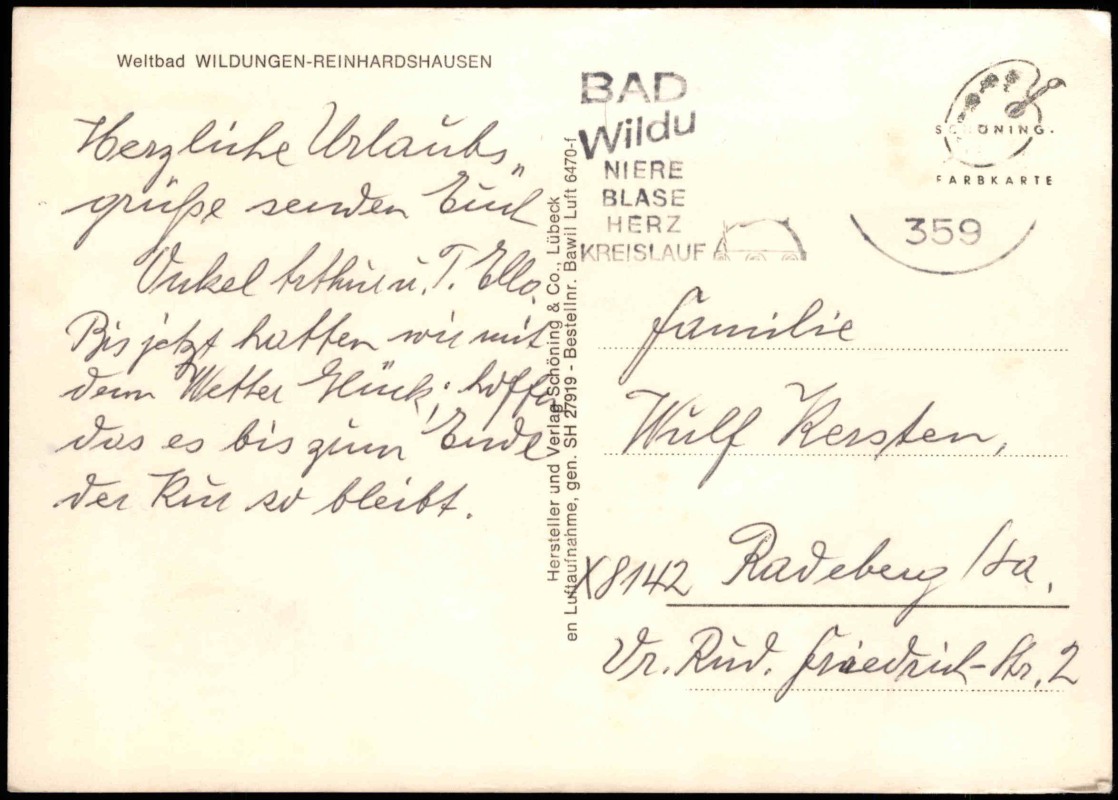 Weltbad WILDUNGEN-REINHARDSHAUSEN
Herzliche Urlaubs„
grüße senden Euch
Onkel Arthur u. T. Ella.
Bis jetzt hatten wir mit
dem Wetter Glück; hoffen
das es bis zum Ende
der Kur so bleibt.
Hersteller und Verlag Schöning & Co., Lübeck
en Luftaufnahme, gen. SH 27919 - Bestellnr. Bawil Luft 6470-f
BAD
Wildu
NIERE
BLASE
HERZ
KREISLAUF
SCHÖNING.
FARBKARTE
359
Familie
Wulf Kersten,
X8142 Radeberg /Sa.
Dr. Rud. Friedrich-Str. 2